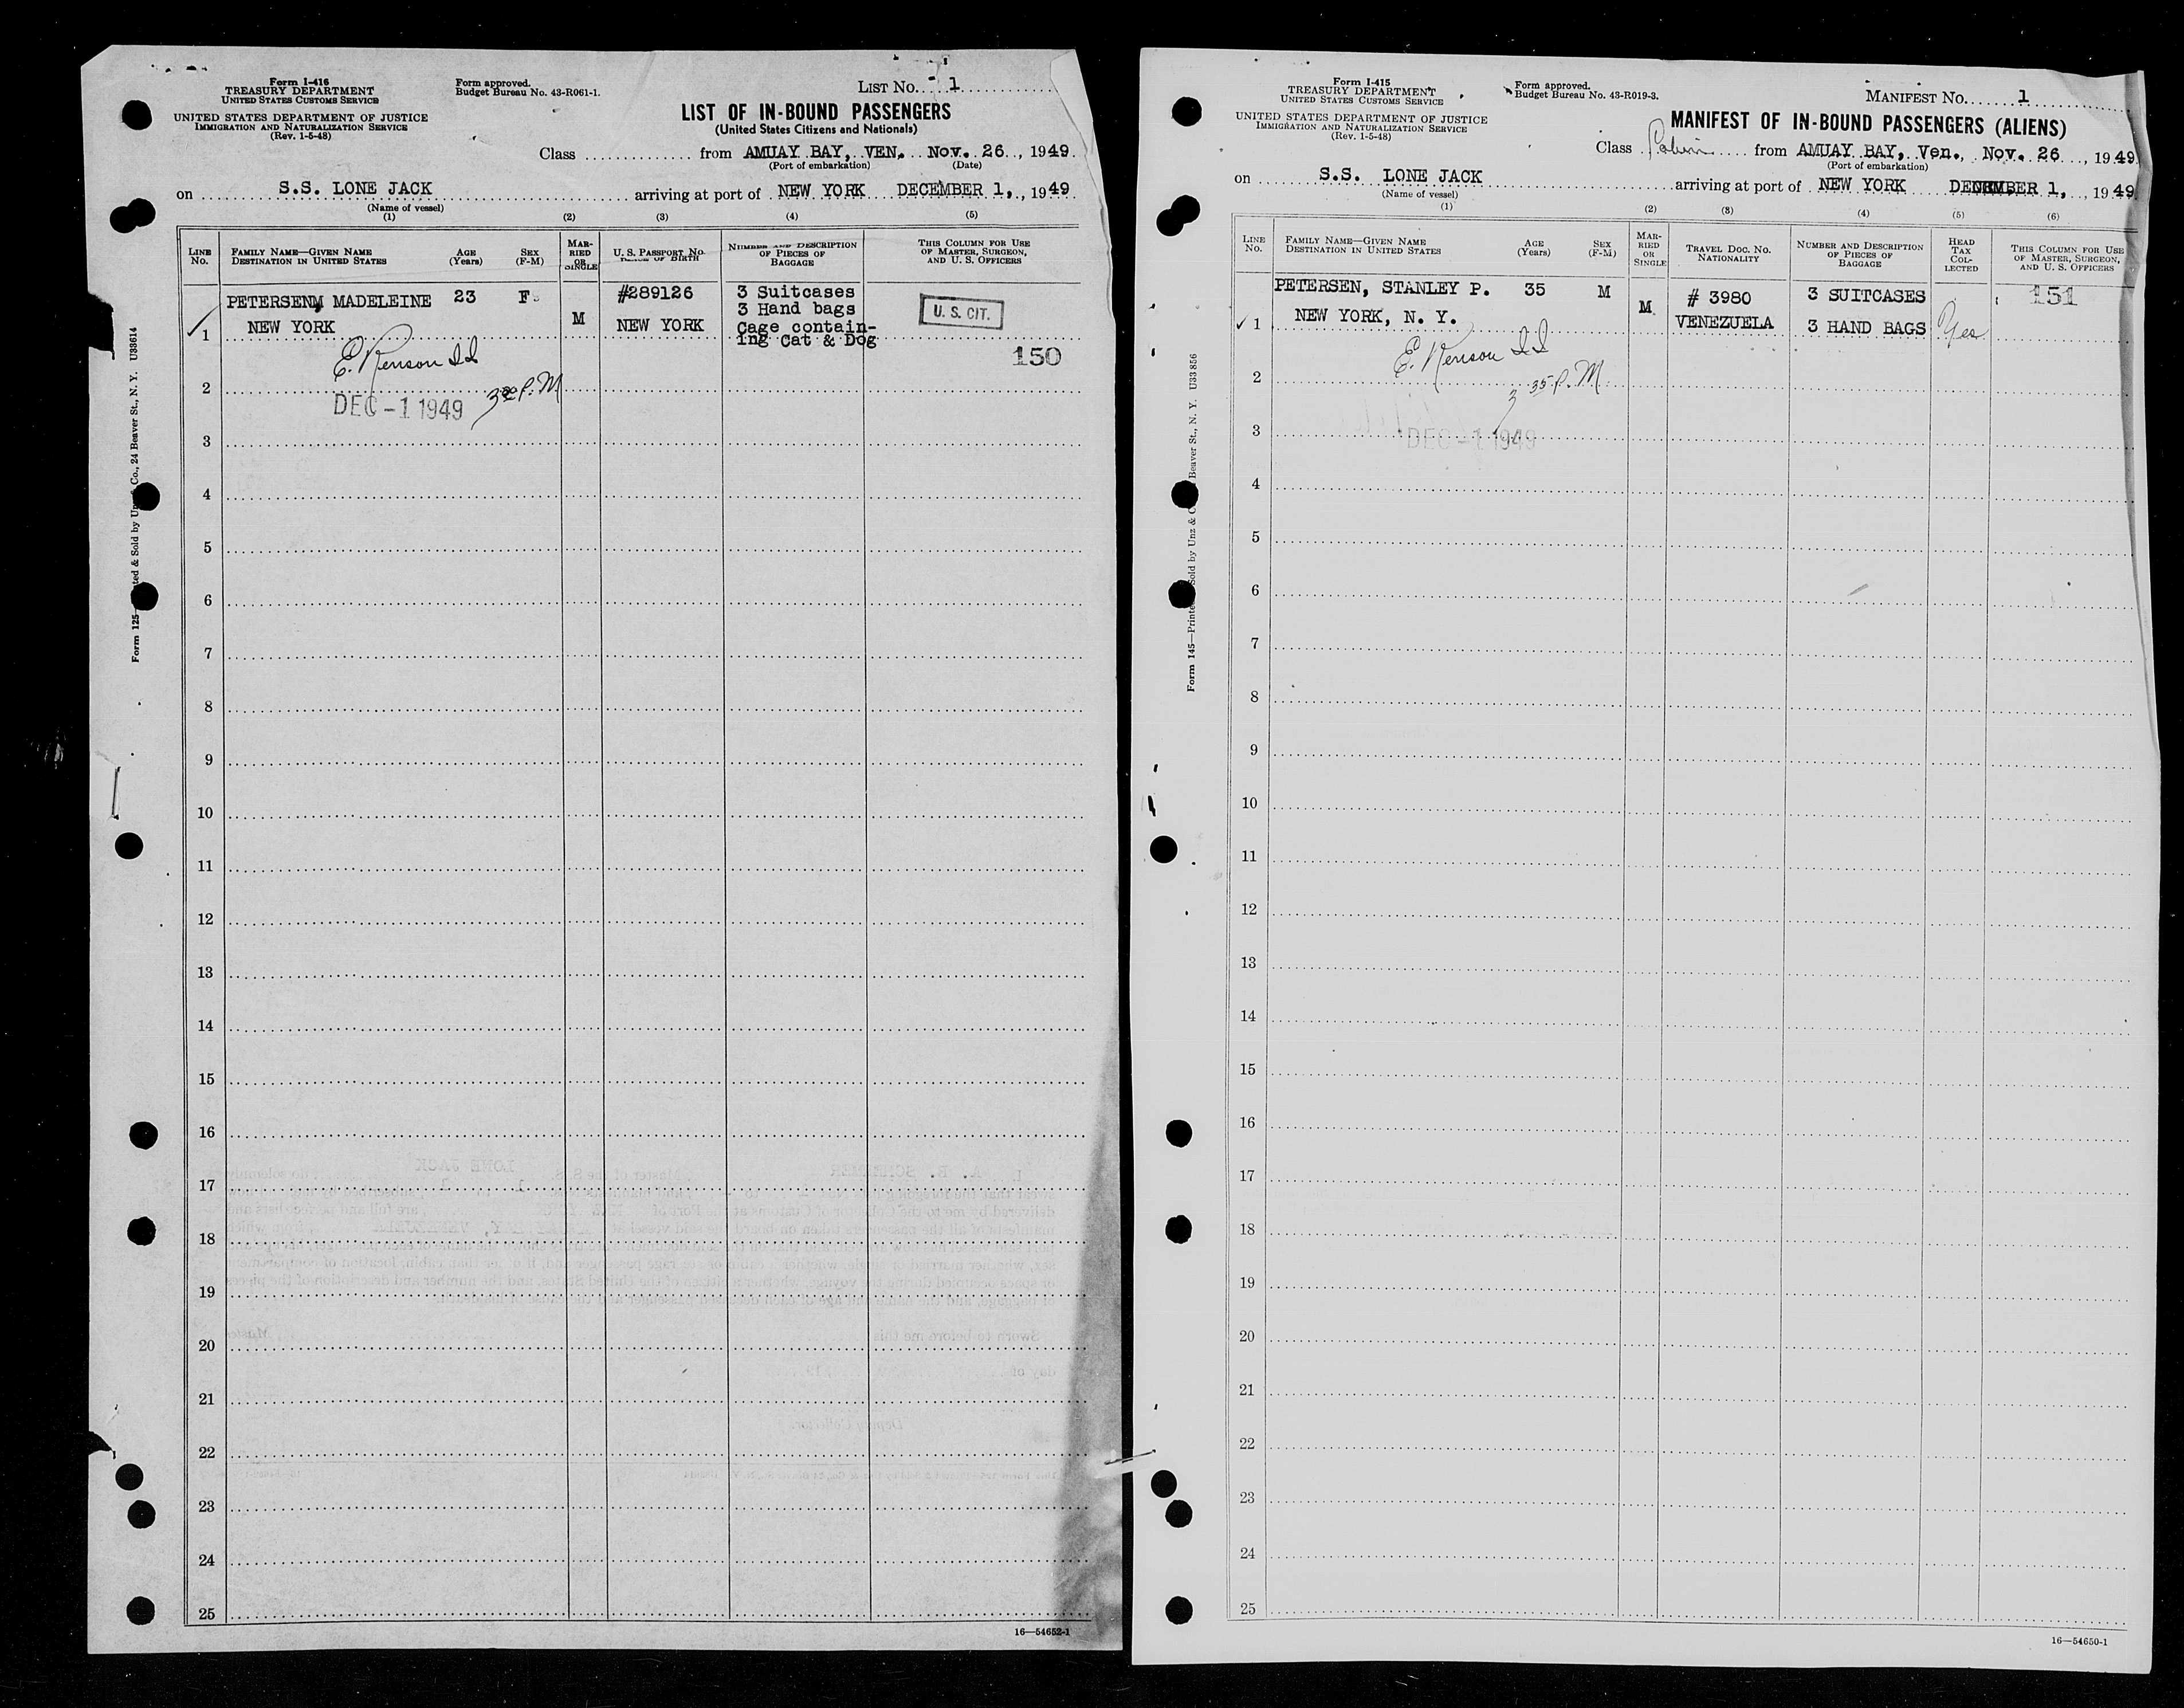 Form I-416
TREASURY DEPARTMENT
UNITED STATES CUSTOMS SERVICE
UNITED STATES DEPARTMENT OF JUSTICE
IMMIGRATION AND NATURALIZATION SERVICE
(Rev. 1-5-48)
Form approved.
Budget Bureau No. 43-R061-1.
LIST No. 1
LIST OF IN-BOUND PASSENGERS
(United States Citizens and Nationals)
Class from AMUAY BAY, VEN. Nov. 26, 1949
(Port of embarkation) (Date)
on S.S. LONE JACK arriving at port of NEW YORK DECEMBER 1, 1949
(Name of vessel)
(1) (2) (3) (4) (5)
LINE No. FAMILY NAME—GIVEN NAME DESTINATION IN UNITED STATES AGE (Years) SEX (F-M) MARRIED OR SINGLE U. S. PASSPORT No. PLACE OF BIRTH NUMBER AND DESCRIPTION OF PIECES OF BAGGAGE THIS COLUMN FOR USE OF MASTER, SURGEON, AND U. S. OFFICERS
PETERSEN, MADELEINE 23 F M #289126 3 Suitcases
3 Hand bags U. S. CIT.
1 NEW YORK NEW YORK Cage contain-
ing Cat & Dog
150
2 P.M
DEC -1 1949
3
4
5
6
7
8
9
10
11
12
13
14
15
16
17
18
19
20
21
22
23
24
25
16—54652-1
Form 125—Printed & Sold by Unz & Co., 24 Beaver St., N. Y. U33614
Form I-415
TREASURY DEPARTMENT
UNITED STATES CUSTOMS SERVICE
UNITED STATES DEPARTMENT OF JUSTICE
IMMIGRATION AND NATURALIZATION SERVICE
(Rev. 1-5-48)
Form approved.
Budget Bureau No. 43-R019-3.
MANIFEST No. 1
MANIFEST OF IN-BOUND PASSENGERS (ALIENS)
Class from AMUAY BAY, Ven., Nov. 26, 1949
(Port of embarkation)
on S.S. LONE JACK arriving at port of NEW YORK DECEMBER 1, 1949
(Name of vessel)
(1) (2) (3) (4) (5) (6)
LINE No. FAMILY NAME—GIVEN NAME DESTINATION IN UNITED STATES AGE (Years) SEX (F-M) MARRIED OR SINGLE TRAVEL DOC. No. NATIONALITY NUMBER AND DESCRIPTION OF PIECES OF BAGGAGE HEAD TAX COLLECTED THIS COLUMN FOR USE OF MASTER, SURGEON, AND U. S. OFFICERS
PETERSEN, STANLEY P. 35 M M # 3980 3 SUITCASES 151
1 NEW YORK, N. Y. VENEZUELA 3 HAND BAGS Yes
2 3 35 P.M
3 DEC -1 1949
4
5
6
7
8
9
10
11
12
13
14
15
16
17
18
19
20
21
22
23
24
25
16—54650-1